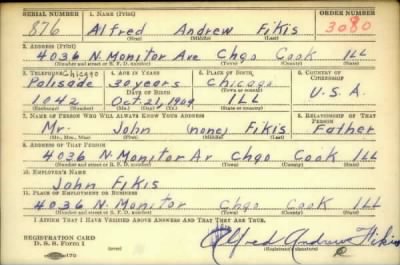 SERIAL NUMBER 1. NAME (Print) ORDER NUMBER
876 Alfred Andrew Fikis 3080
(First) (Middle) (Last)
2. ADDRESS (Print)
4036 N. Monitor Ave Chgo Cook ILL
(Number and street or R. F. D. number) (Town) (County) (State)
3. TELEPHONE 4. AGE IN YEARS 5. PLACE OF BIRTH 6. COUNTRY OF CITIZENSHIP
Chicago
Palisade 30 years Chicago
DATE OF BIRTH (Town or county)
1042 Oct. 21, 1909 ILL U.S.A.
(Exchange) (Number) (Mo.) (Day) (Yr.) (State or country)
7. NAME OF PERSON WHO WILL ALWAYS KNOW YOUR ADDRESS 8. RELATIONSHIP OF THAT PERSON
Mr. John (none) Fikis Father
(Mr., Mrs., Miss) (First) (Middle) (Last)
9. ADDRESS OF THAT PERSON
4036 N. Monitor Av Chgo Cook ILL
(Number and street or R. F. D. number) (Town) (County) (State)
10. EMPLOYER'S NAME
John Fikis
11. PLACE OF EMPLOYMENT OR BUSINESS
4036 N. Monitor Chgo Cook ILL
(Number and street or R. F. D. number) (Town) (County) (State)
I AFFIRM THAT I HAVE VERIFIED ABOVE ANSWERS AND THAT THEY ARE TRUE.
REGISTRATION CARD
D. S. S. Form 1 Alfred Andrew Fikis